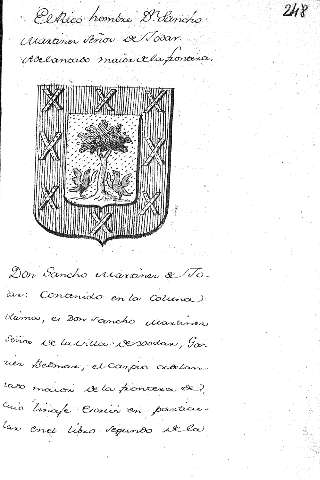 248
El Rico hombre Dn. Sancho
Martinez Señor de Tovar
Adelantado maior de la frontera.
Don Sancho Martinez de To-
var: Contenido en la Coluna
ultima, es Don Sancho Martinez
Señor de la villa de
el Carpio adelan-
tado maior de la frontera
linaje en particu-
lar en el libro segundo de la